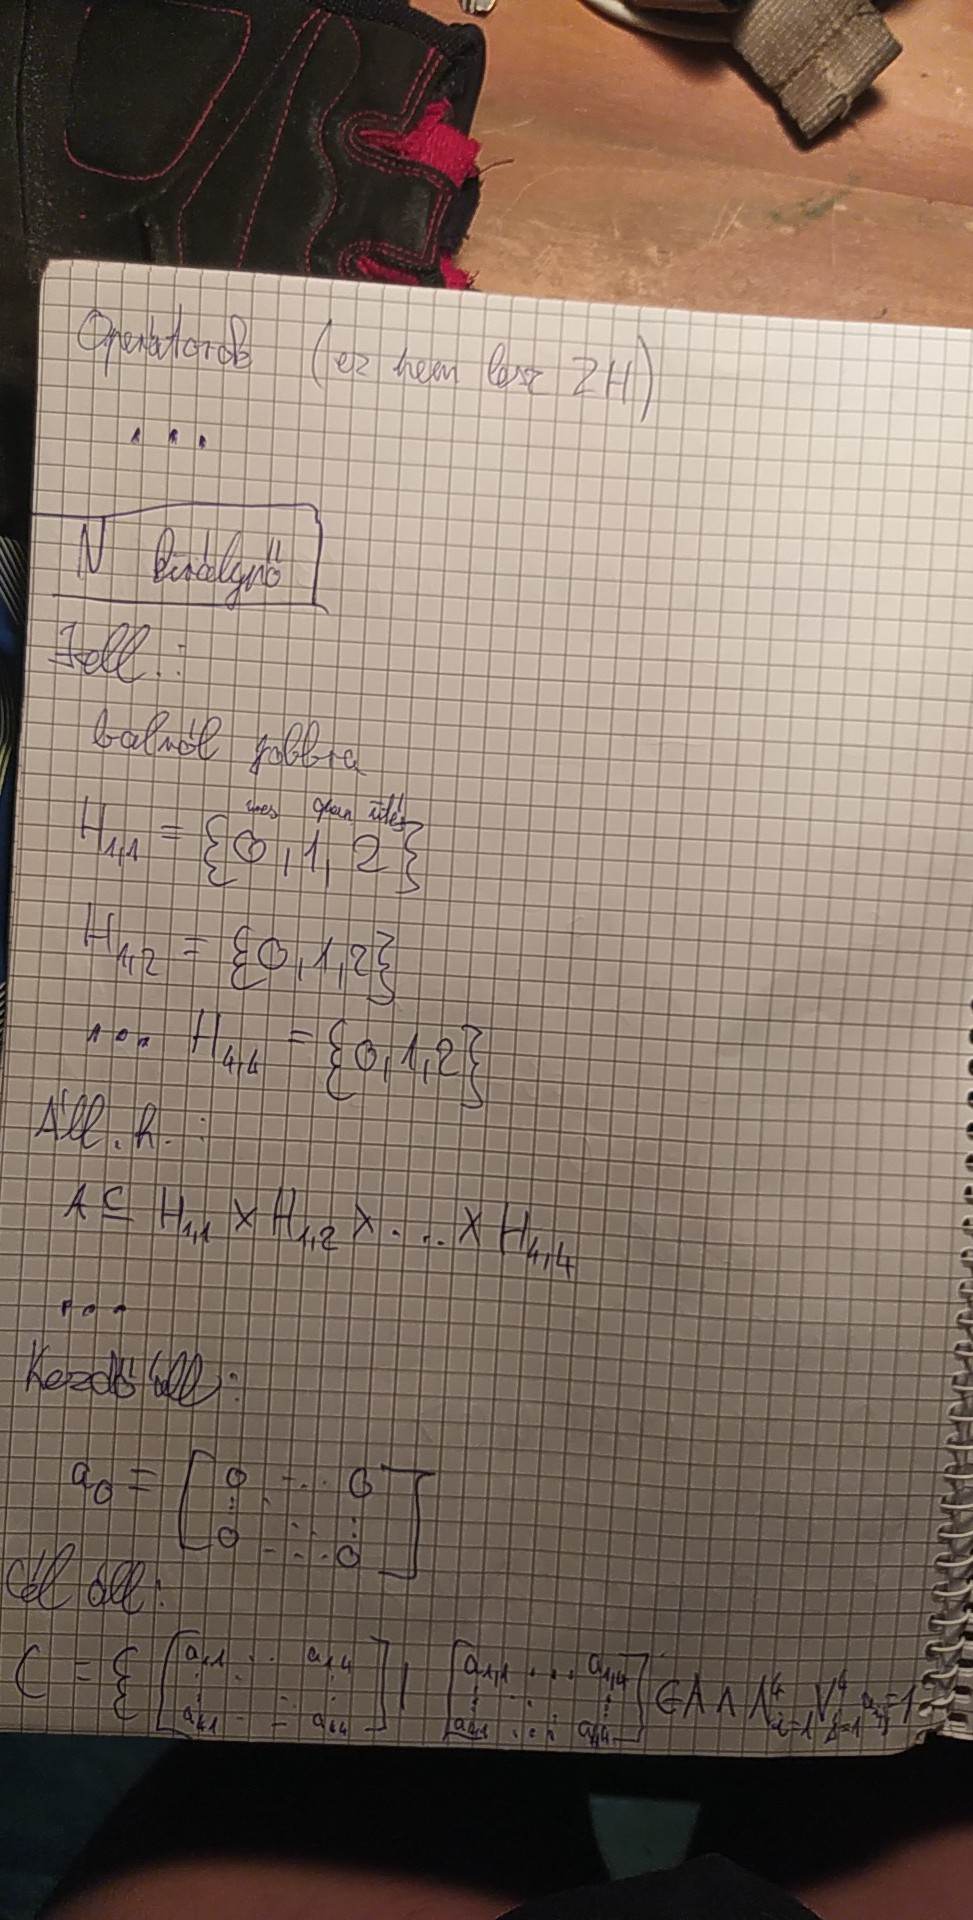 Operátorok (ez nem lesz ZH)
...
N királynő
Jell.:
balról jobbra
üres ütés
H₁,₁ = {0, 1, 2}
H₁,₂ = {0, 1, 2}
... H₄,₄ = {0, 1, 2}
Áll. h.:
A ⊆ H₁,₁ × H₁,₂ × ... × H₄,₄
...
Kezdő áll:
a₀ = [0 ... 0
⋮ ⋱ ⋮
0 ... 0]
Cél áll:
C = { [a₁,₁ ... a₁,₄ ⋮ ⋱ ⋮ a₄,₁ ... a₄,₄] | [a₁,₁ ... a₁,₄ ⋮ ⋱ ⋮ a₄,₁ ... a₄,₄] ∈ A ∧ ⋀⁴ᵢ₌₁ ⋁⁴ⱼ₌₁ aᵢ,ⱼ = 1